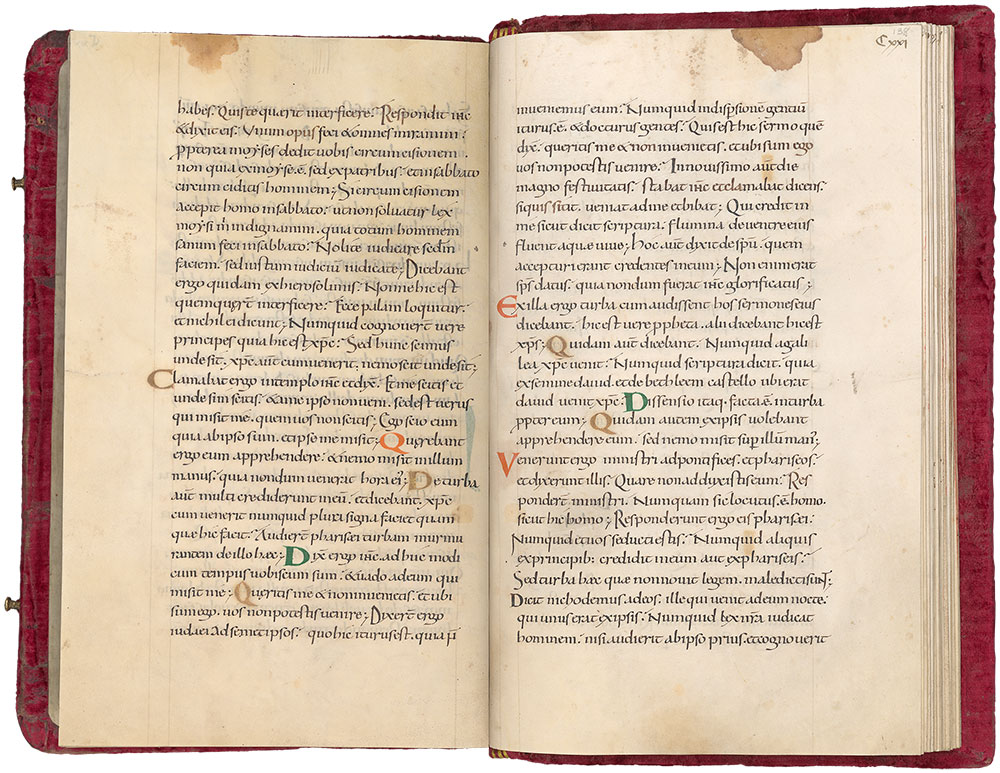 habes. Quis te querit interficere. Respondit ihc
& dixit eis. Unum opus feci & omnes miramini.
ppterea moyses dedit uobis circumcisionem
non quia ex moyse. ē. sed ex patribus. et in sabbato
circumciditis hominem; Si circumcisionem
accepit homo in sabbato. ut non soluatur lex
moysi. m̄ indignamini. quia totum hominem
sanum feci in sabbato. Nolite iudicare sedm̄
faciem. sed iustum iudiciū iudicate; Dicebant
ergo quidam ex hierosolimis. Nonne hic est
quem querūt interficere. Ecce palam loquitur.
et nihil ei dicunt; Numquid cognouerūt uere
principes quia hic est xpc. Sed hunc scimus
unde sit. xpc aūt cum uenerit. nemo scit unde sit;
Clamabat ergo in templo ihc et dix̄. Et me scitis et
unde sim scitis. & a me ipso non ueni. sed est uerus
qui misit me. quem uos non scitis; Ego scio eum
quia ab ipso sum. et ipse me misit; Querebant
ergo eum apprehendere. & nemo misit in illum
manus. quia nondum uenerat hora ei; De turba
aūt multi crediderunt in eū. et dicebant. xpc
cum uenerit numquid plura signa faciet quam
quæ hic facit. Audierūt pharisei turbam murmu
rantem de illo hæc; Dix̄ ergo ihc. adhuc modi
cum tempus uobiscum sum. & uado ad eum qui
misit me; Queritis me & non inuenietis. et ubi
sum ego. uos non potestis uenire; Dixerūt ergo
iudaei ad semet ipsos. quo hic iturus est. quia ñ
Cxxi
inueniemus eum. Numquid in dispsionē gentiū
iturus. ē. & docturus gentes. Quis est hic sermo quē
dix̄. queritis me & non inuenietis. et ubi sum ego
uos non potestis uenire. In nouissimo aūt die
magno festiuitatis. stabat ihc et clamabat dicens.
siquis sitit. ueniat ad me et bibat; Qui credit in
me sicut dicit scriptura. flumina de uentre eius
fluent aquæ uiuæ; Hoc aūt dixit de spū. quem
accepturi erant credentes in eum; Non enim erat
sps datus. quia nondum fuerat ihc glorificatus;
Ex illa ergo turba cum audissent hos sermones eius
dicebant. hic est uere ppheta. alii dicebant hic est
xps; Quidam aūt dicebant. Numquid a gali
lea xpc uenit. Numquid scriptura dicit. quia
ex semine dauid. et de bethleem castello ubi erat
dauid uenit xpc. Dissensio itaq; facta ē in turba
ppter eum; Quidam autem ex ipsis uolebant
apprehendere eum. sed nemo misit sup illū man';
Venerunt ergo ministri ad pontifices. et phariseos.
et dixerunt illis. Quare non adduxistis eum. Res
ponderūt ministri. Numquam sic locutus. ē. homo.
sicut hic homo; Responderunt ergo eis pharisei.
Numquid et uos seducti estis. Numquid aliquis
ex principib; credidit in eum aut ex phariseis.
Sed turba hæc quæ non nouit legem. maledicti sunt;
Dicit nichodemus ad eos. ille qui uenit ad eum nocte.
qui unus erat ex ipsis. Numquid lex nr̄a iudicat
hominem. nisi audierit ab ipso prius. et cognouerit